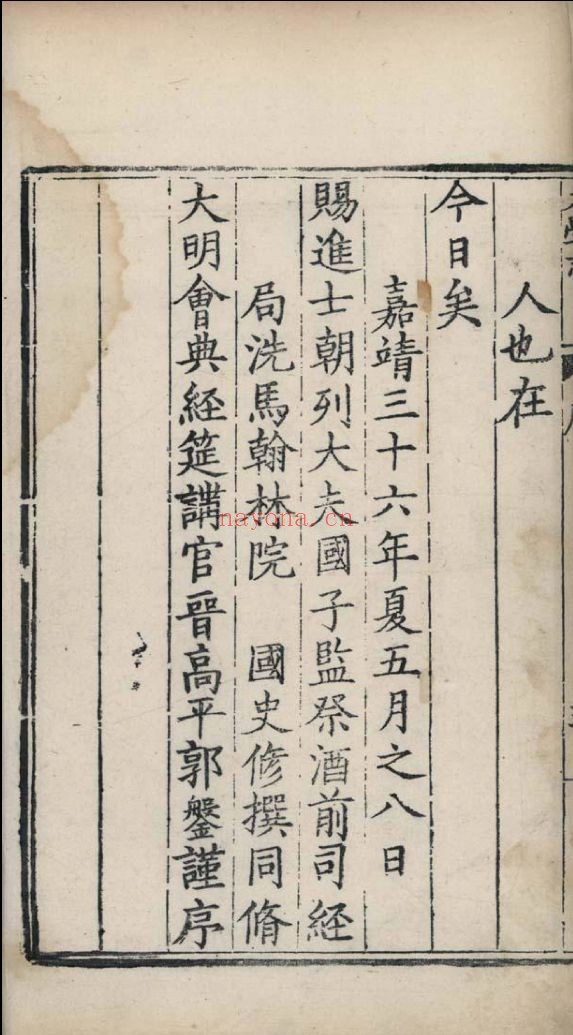 人也在
今日矣
嘉靖三十六年夏五月之八日
賜進士朝列大夫國子監祭酒前司經
局洗馬翰林院 國史修撰同脩
大明會典經筵講官晉高平郭鑿謹序
nayona.cn